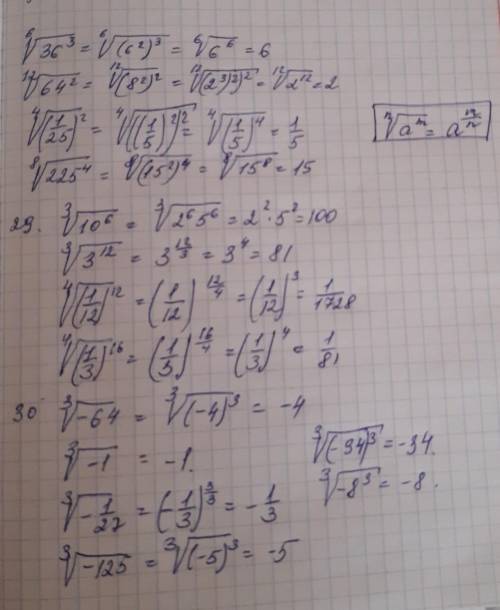 ⁶√36³ = ⁶√(6²)³ = ⁶√6⁶ = 6
¹²√64² = ¹²√(8²)² = ¹²√((2³)²)² = ¹²√2¹² = 2
⁴√(1/25)² = ⁴√((1/5)²)² = ⁴√(1/5)⁴ = 1/5
ⁿ√aᵐ = a^(m/n)
⁸√225⁴ = ⁸√(15²)⁴ = ⁸√15⁸ = 15
29. ³√10⁶ = ³√2⁶5⁶ = 2²·5² = 100
³√3¹² = 3^(12/3) = 3⁴ = 81
⁴√(1/12)¹² = (1/12)^(12/4) = (1/12)³ = 1/1728
⁴√(1/3)¹⁶ = (1/3)^(16/4) = (1/3)⁴ = 1/81
30 ³√-64 = ³√(-4)³ = -4
³√-1 = -1.
³√(-34)³ = -34.
³√-8³ = -8.
³√-1/27 = (-1/3)^(3/3) = -1/3
³√-125 = ³√(-5)³ = -5